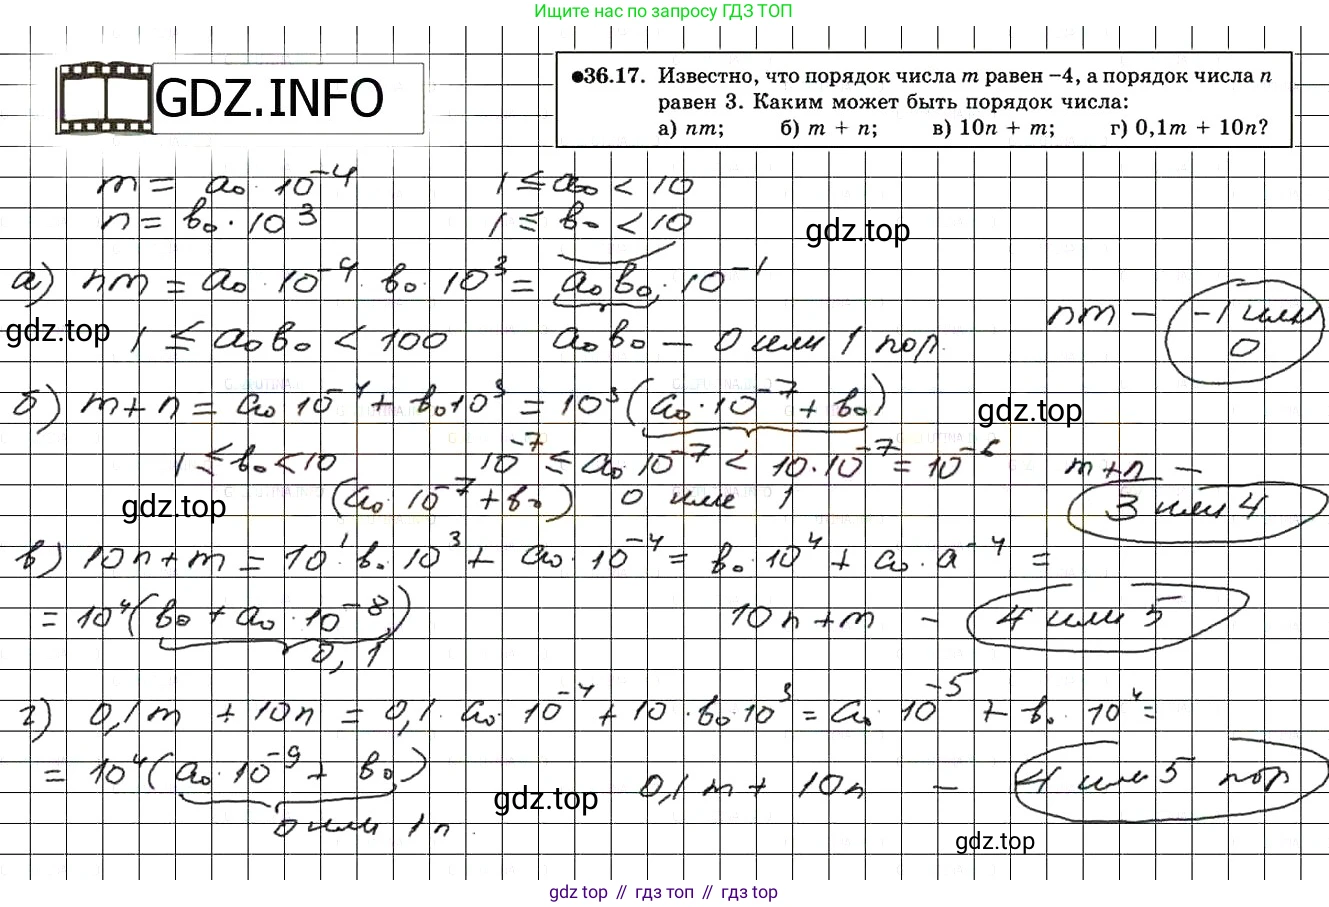 Ищите нас по запросу ГДЗ ТОП
GDZ.INFO
•36.17. Известно, что порядок числа m равен −4, а порядок числа n
равен 3. Каким может быть порядок числа:
а) nm; б) m + n; в) 10n + m; г) 0,1m + 10n?
m = a₀ · 10⁻⁴ 1 ≤ a₀ < 10
n = b₀ · 10³ 1 ≤ b₀ < 10
gdz.top
а) nm = a₀ · 10⁻⁴ · b₀ · 10³ = a₀b₀ · 10⁻¹
gdz.top
1 ≤ a₀b₀ < 100 a₀b₀ — 0 или 1 пор. nm — −1 или 0
б) m + n = a₀ 10⁻⁴ + b₀10³ = 10³(a₀ · 10⁻⁷ + b₀)
gdz.top
1 ≤ b₀ < 10 10⁻⁷ ≤ a₀ 10⁻⁷ < 10 · 10⁻⁷ = 10⁻⁶ m+n —
gdz.top
(a₀ · 10⁻⁷ + b₀) 0 или 1 3 или 4
в) 10n + m = 10¹ · b₀ · 10³ + a₀ · 10⁻⁴ = b₀ · 10⁴ + a₀ · a⁻⁴ =
= 10⁴(b₀ + a₀ · 10⁻⁸) 10n + m — 4 или 5
0, 1
г) 0,1m + 10n = 0,1 · a₀ · 10⁻⁴ + 10 · b₀ · 10³ = a₀ · 10⁻⁵ + b₀ · 10⁴ =
= 10⁴(a₀ · 10⁻⁹ + b₀) 0,1m + 10n — 4 или 5 пор
gdz.top
0 или 1 п.
gdz.top
gdz top // гдз топ // гдз top